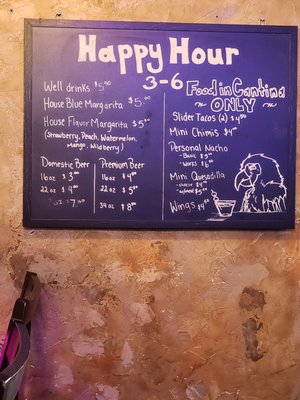 Happy Hour
3-6
Well drinks $5.00
House Blue Margarita $5.00
House Flavor Margarita $5.00
(Strawberry, Peach, Watermelon,
Mango, Wildberry)
Domestic Beer
16oz $3.00
22oz $4.00
oz $7.00
Premium Beer
16oz $4.00
22oz $5.00
34oz $8.00
Food in Cantina
~ ONLY ~
Slider Tacos (2) $4.00
Mini Chimis $4.00
Personal Nacho
- Basic $5.00
- Works $6.00
Mini Quesadilla
- cheese $4.00
- $5.00
Wings $4.00